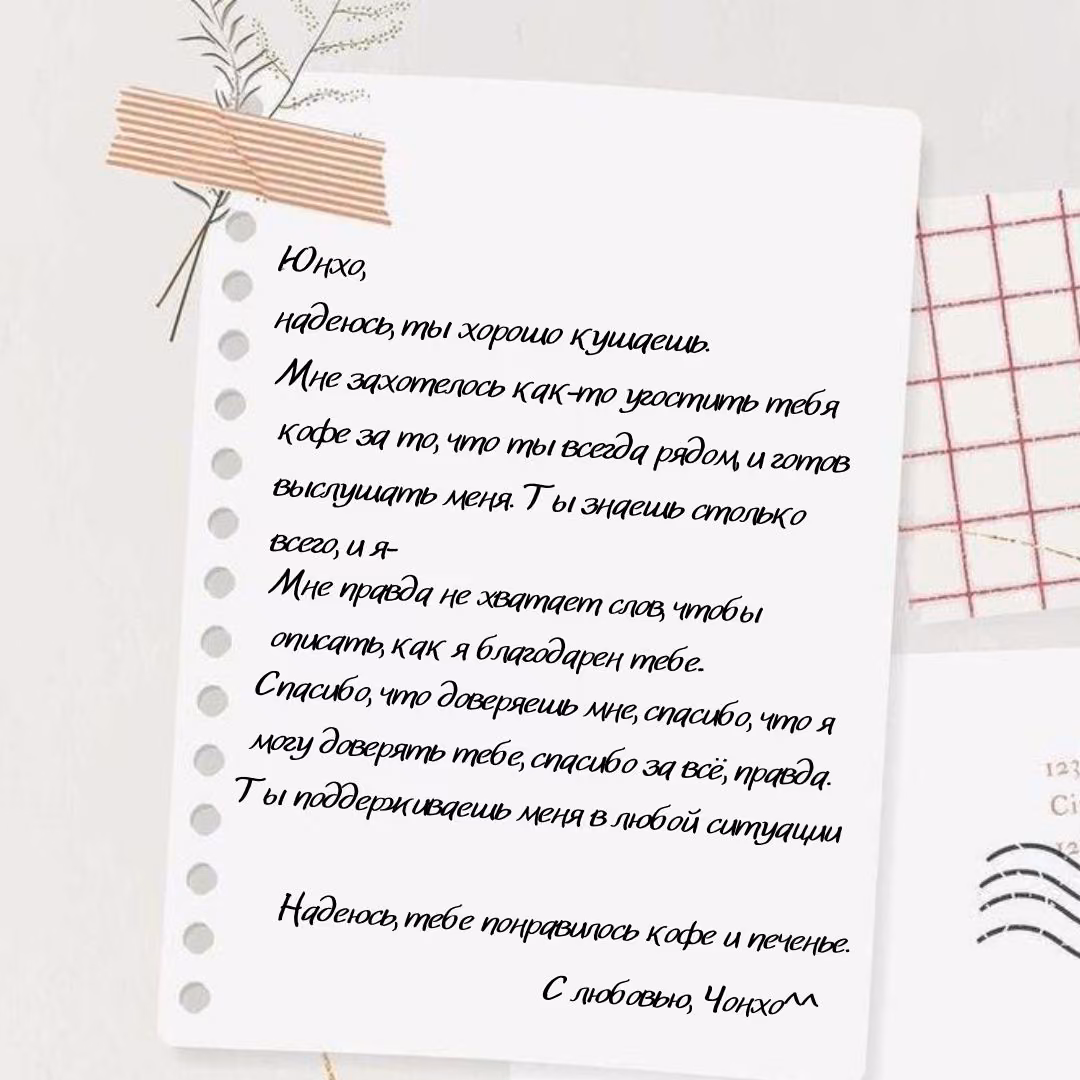 Юнхо,
надеюсь, ты хорошо кушаешь.
Мне захотелось как-то угостить тебя
кофе за то, что ты всегда рядом, и готов
выслушать меня. Ты знаешь столько
всего, и я-
Мне правда не хватает слов, чтобы
описать, как я благодарен тебе.
Спасибо, что доверяешь мне, спасибо, что я
могу доверять тебе, спасибо за всё, правда.
Ты поддерживаешь меня в любой ситуации
Надеюсь, тебе понравилось кофе и печенье.
С любовью, Чонхо^^
123
Ci
12